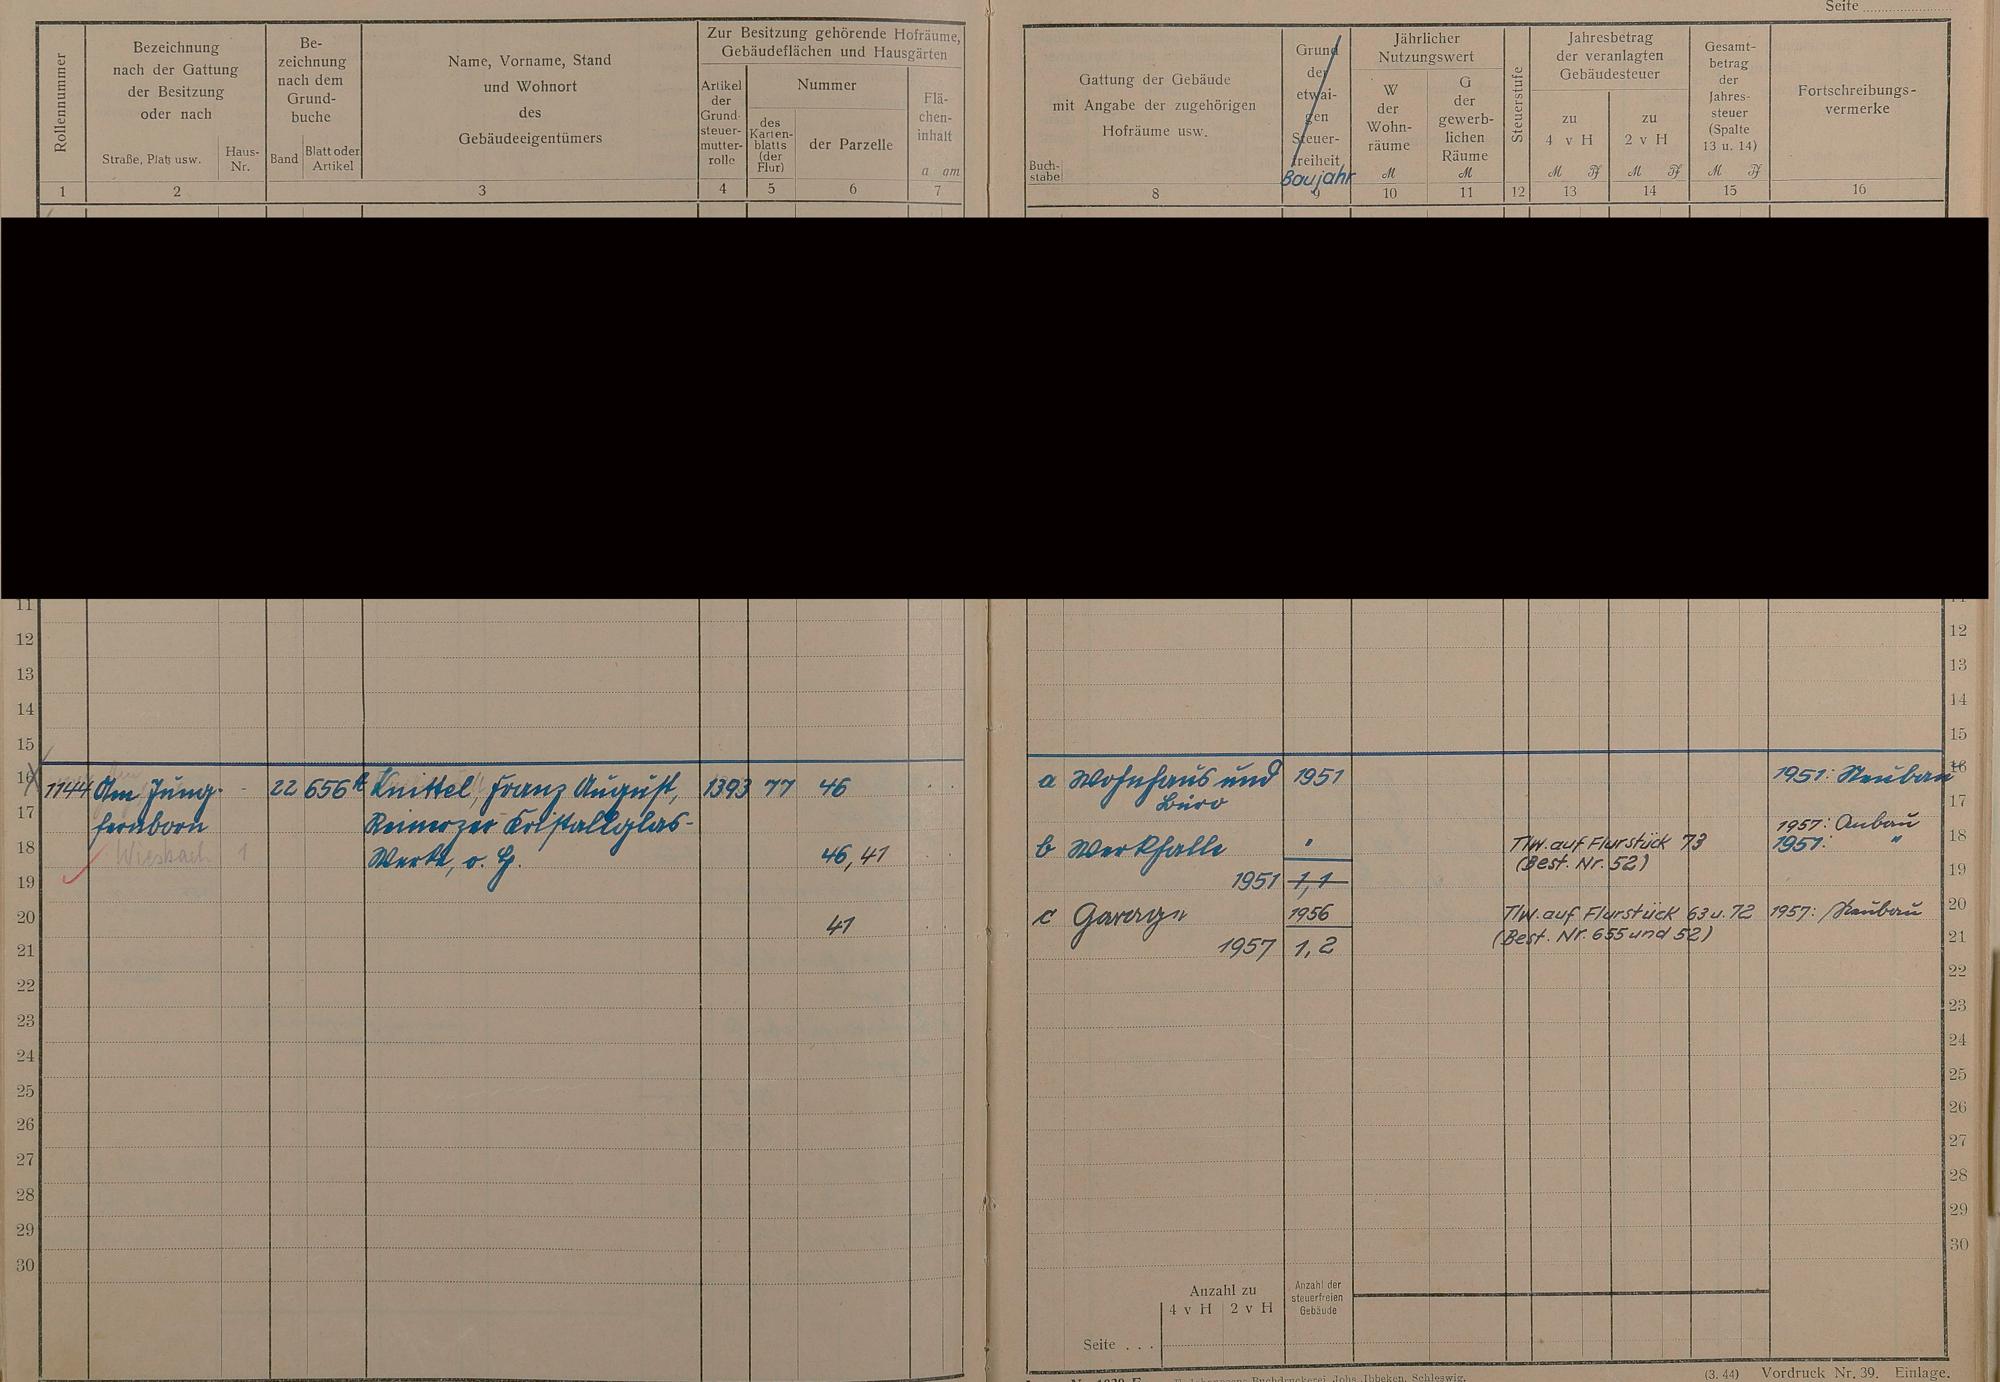 Seite
Rollennummer
Bezeichnung
nach der Gattung
der Besitzung
oder nach
Straße, Platz usw.
Haus-
Nr.
Be-
zeichnung
nach dem
Grund-
buche
Band
Blatt oder
Artikel
Name, Vorname, Stand
und Wohnort
des
Gebäudeeigentümers
Zur Besitzung gehörende Hofräume,
Gebäudeflächen und Hausgärten
Artikel
der
Grund-
steuer-
mutter-
rolle
Nummer
des
Karten-
blatts
(der
Flur)
der Parzelle
Flä-
chen-
inhalt
a qm
1 2 3 4 5 6 7
Buch-
stabe
Gattung der Gebäude
mit Angabe der zugehörigen
Hofräume usw.
Grund
der
etwai-
gen
Steuer-
freiheit
Baujahr
Jährlicher
Nutzungswert
W
der
Wohn-
räume
M
G
der
gewerb-
lichen
Räume
M
Steuerstufe
Jahresbetrag
der veranlagten
Gebäudesteuer
zu
4 v H
M Pf
zu
2 v H
M Pf
Gesamt-
betrag
der
Jahres-
steuer
(Spalte
13 u. 14)
M Pf
Fortschreibungs-
vermerke
8 9 10 11 12 13 14 15 16
11
12
13
14
15
16
17
18
19
20
21
22
23
24
25
26
27
28
29
30
1144 Am Jung- 22 656 Knittel, Franz August, 1393 77 46
fernborn Reinerzer Kristallglas-
Wiesbach 1 Werke, o. H. 46, 41
41
a Wohnhaus und 1951 1951: Neubau
Büro
1957: Anbau
b Werkhalle " Tlw. auf Flurstück 73 1957: "
(Best. Nr. 52)
1951 1, 1
c Garage 1956 Tlw. auf Flurstück 63 u. 72 1957: Neubau
(Best. Nr. 655 und 52)
1957 1, 2
12
13
14
15
16
17
18
19
20
21
22
23
24
25
26
27
28
29
30
Anzahl zu
4 v H 2 v H
Anzahl der
steuerfreien
Gebäude
Seite . . .
Buchdruckerei Johs. Ibbeken, Schleswig.
(3. 44) Vordruck Nr. 39. Einlage.